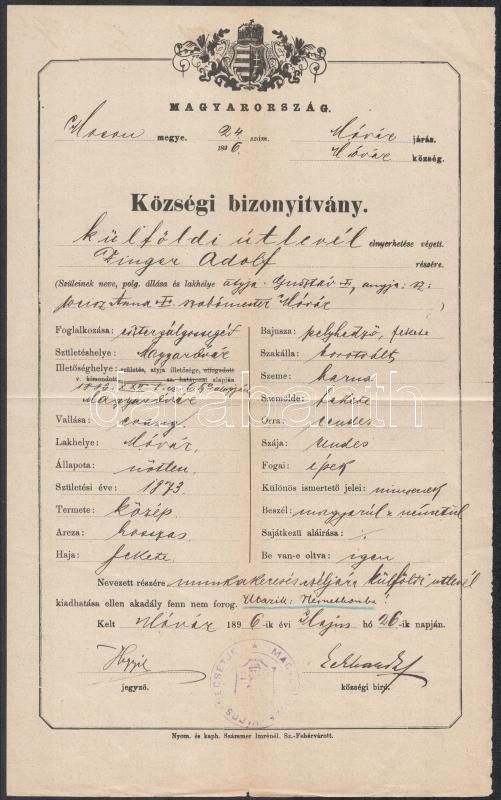 MAGYARORSZÁG.
Moson megye. 24 szám. Móvár járás.
1896. Móvár község.
Községi bizonyitvány.
külföldi útlevél elnyerhetése végett.
Zinger Adolf részére.
(Szüleinek neve, polg. állása és lakhelye atyja Gusztáv †, anyja:
Anna †. szabómester Móvár )
Foglalkozása: esztergályossegéd
Születéshelye: Magyaróvár
Illetőséghelye: születés, atyja illetősége, elfogadott
v. kimondott sa. határozat alapján
Magyaróvár
Vallása:
Lakhelye: Móvár.
Állapota: nőtlen.
Születési éve: 1873.
Termete: közép
Arcza: hosszas
Haja: fekete.
Bajusza: pelyhedző, fekete
Szakálla: borotvált
Szeme: barna
Szemölde: fekete
Orra: rendes
Szája: rendes
Fogai: épek
Különös ismertető jelei: nincsenek
Beszél: magyarúl s németül
Sajátkezű aláirása:
Be van-e oltva: igen
Nevezett részére munkakeresés céljára külföldi útlevél
kiadhatása ellen akadály fenn nem forog. Utazik: Némethonba!
Kelt Móvár 1896-ik évi Május hó 26-ik napján.
jegyző. községi biró.
Nyom. és kaph. Számmer Imrénél. Sz.-Fehérvárott.
darabanth